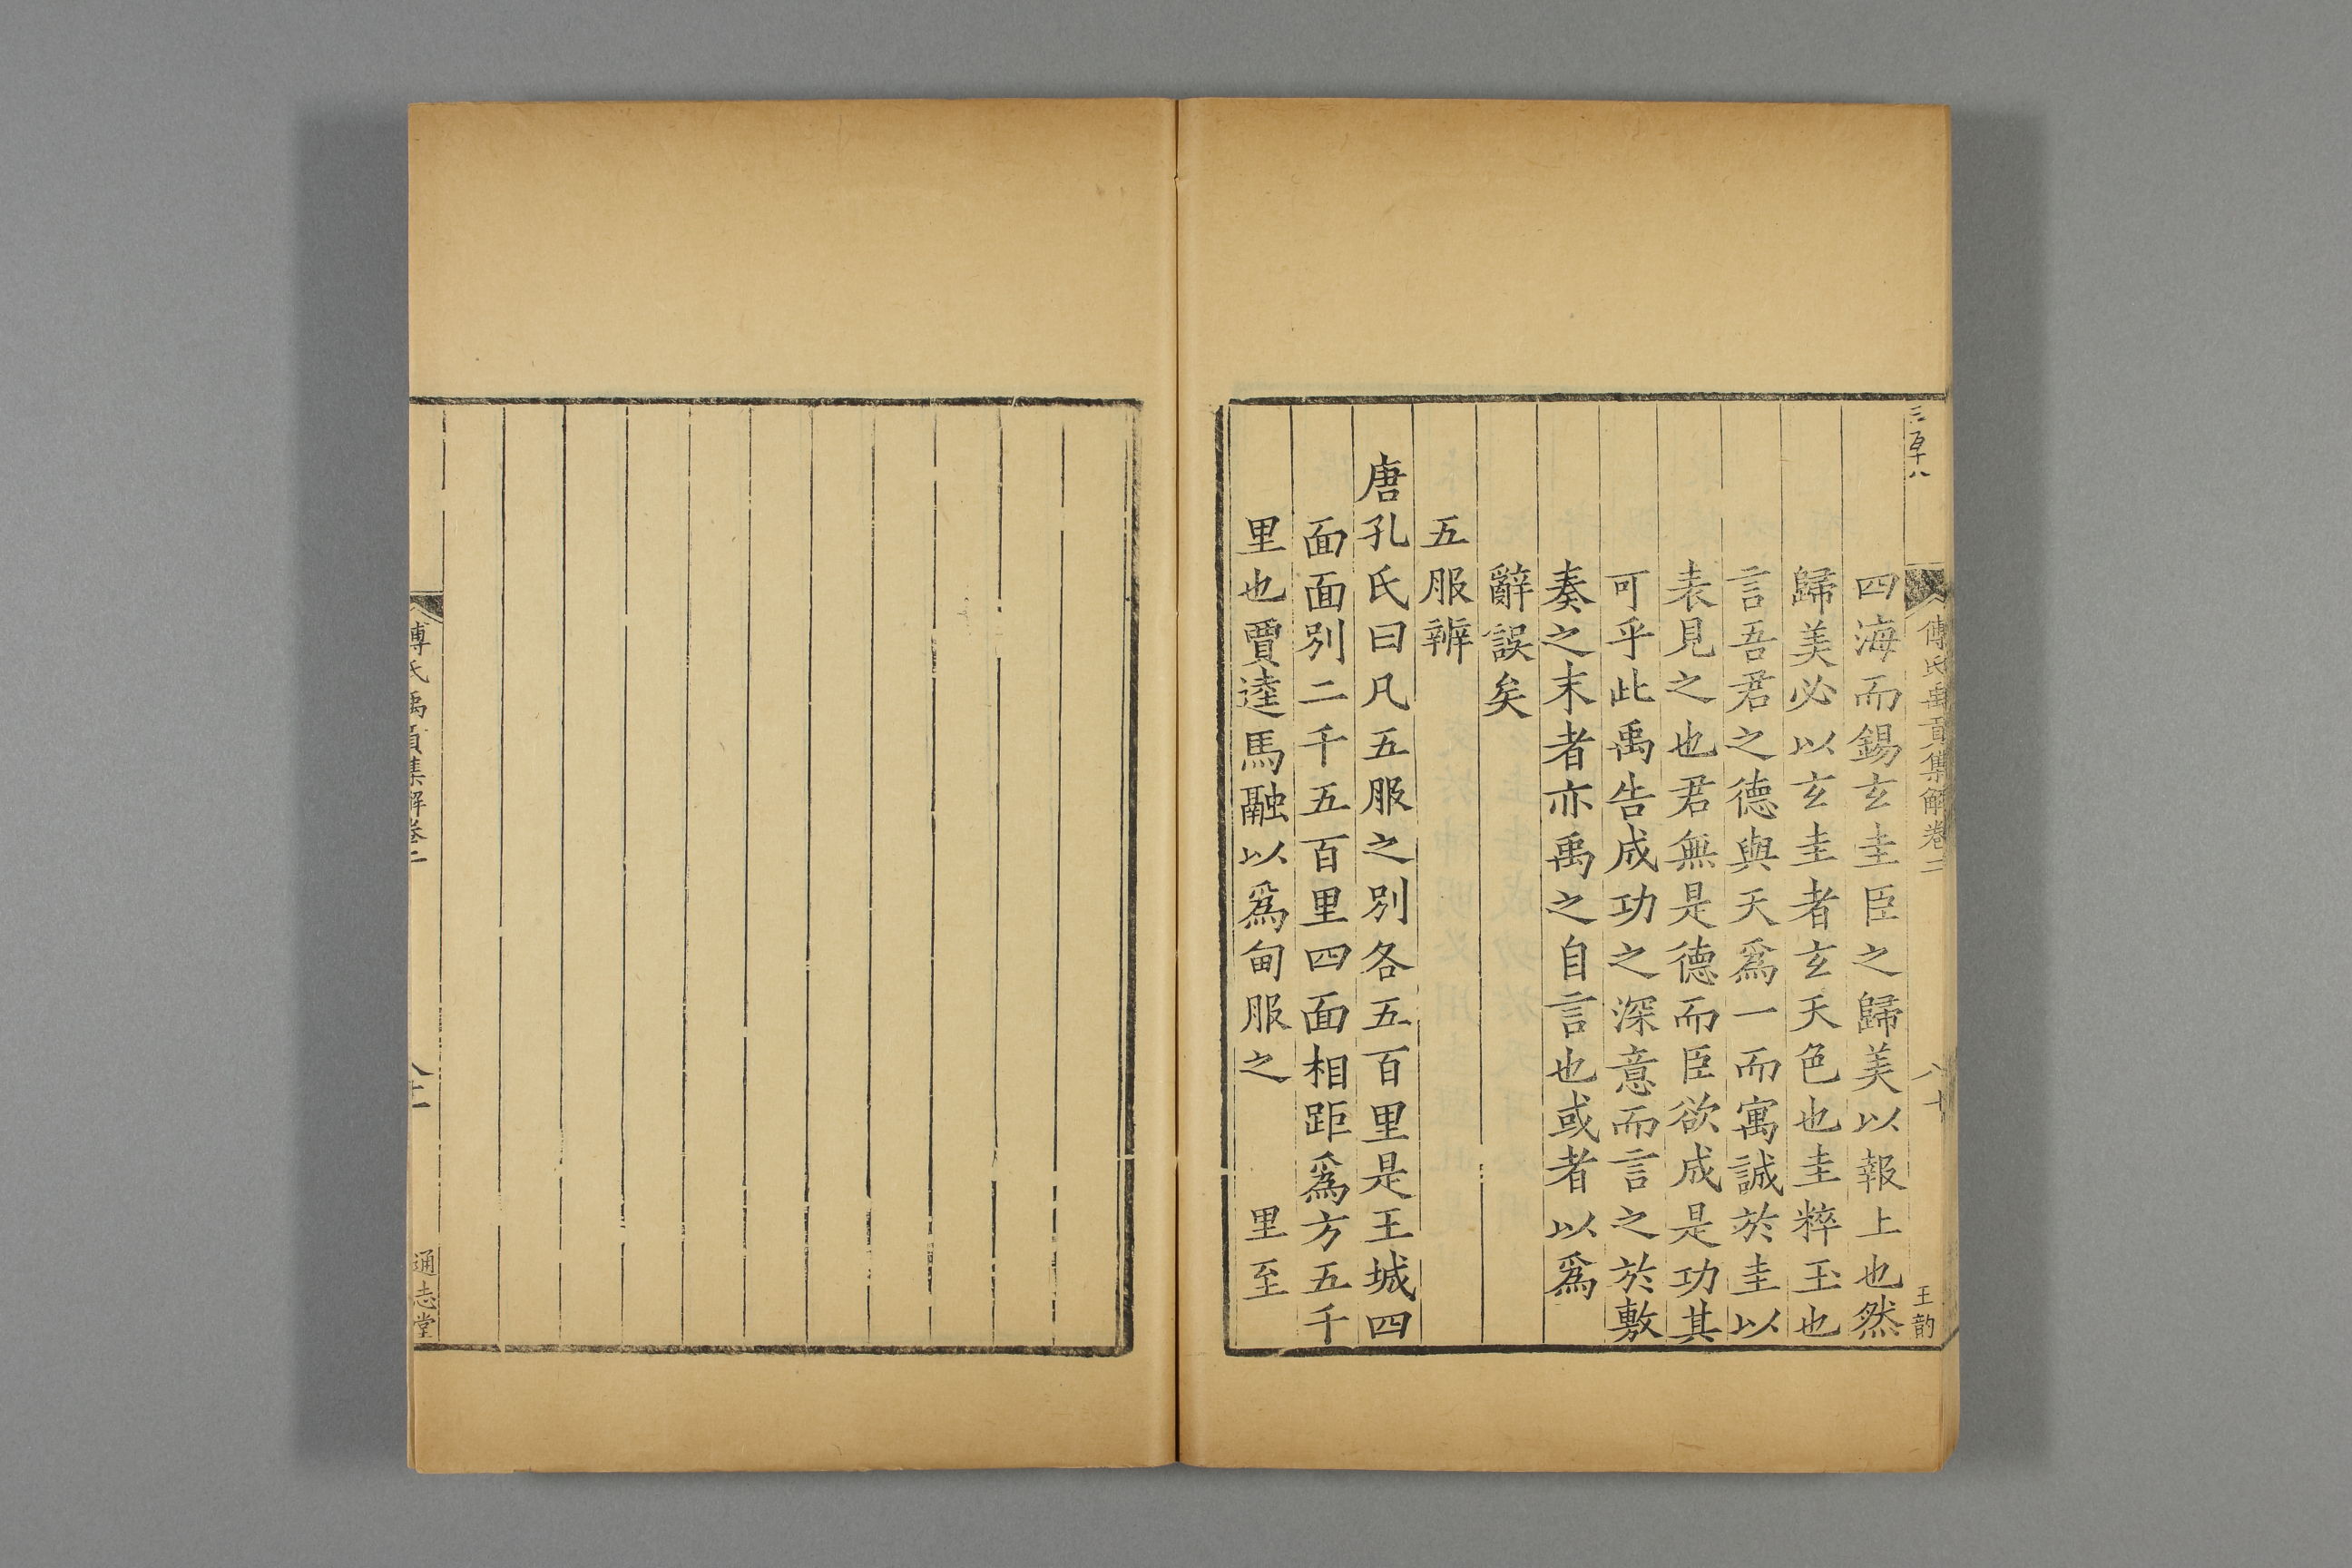 傅氏禹貢集解卷二
八十
王韵
四海而錫玄圭臣之歸美以報上也然
歸美必以玄圭者玄天色也圭粹玉也
言吾君之德與天爲一而寓誠於圭以
表見之也君無是德而臣欲成是功其
可乎此禹告成功之深意而言之於敷
奏之末者亦禹之自言也或者以爲
辭誤矣
五服辨
唐孔氏曰凡五服之別各五百里是王城四
面面別二千五百里四面相距爲方五千
里也賈逵馬融以爲甸服之
里至
傅氏禹貢集解卷二
通志堂